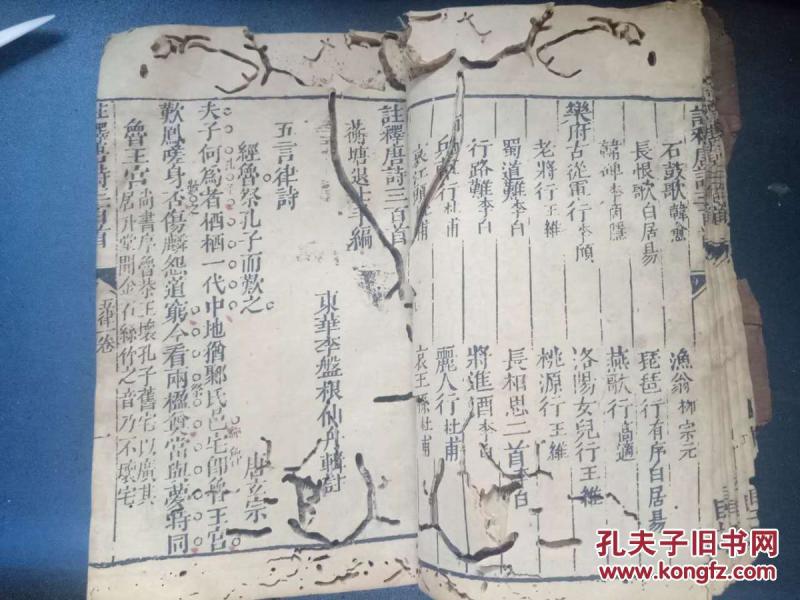 石鼓歌韓愈
漁翁柳宗元
長恨歌白居易
琵琶行有序白居易
韓碑李商隱
燕歌行高適
樂府古從軍行李頎
洛陽女兒行王維
老將行王維
桃源行王維
蜀道難李白
長相思二首李白
行路難李白
將進酒李白
兵車行杜甫
麗人行杜甫
哀江頭杜甫
哀王孫杜甫
註釋唐詩三百首
蘅塘退士手編
東華李盤根仙舟輯註
五言律詩
經魯祭孔子而歎之
唐玄宗
夫子何為者栖栖一代中地猶鄹氏邑宅即魯王宮
歎鳳嗟身否傷麟怨道窮今看兩楹奠當與夢時同
魯王宮尚書序魯恭王壞孔子舊宅以廣其
居升堂聞金石絲竹之音乃不壞宅
註釋唐詩三百首
五律一卷
一
孔夫子旧书网
www.kongfz.com